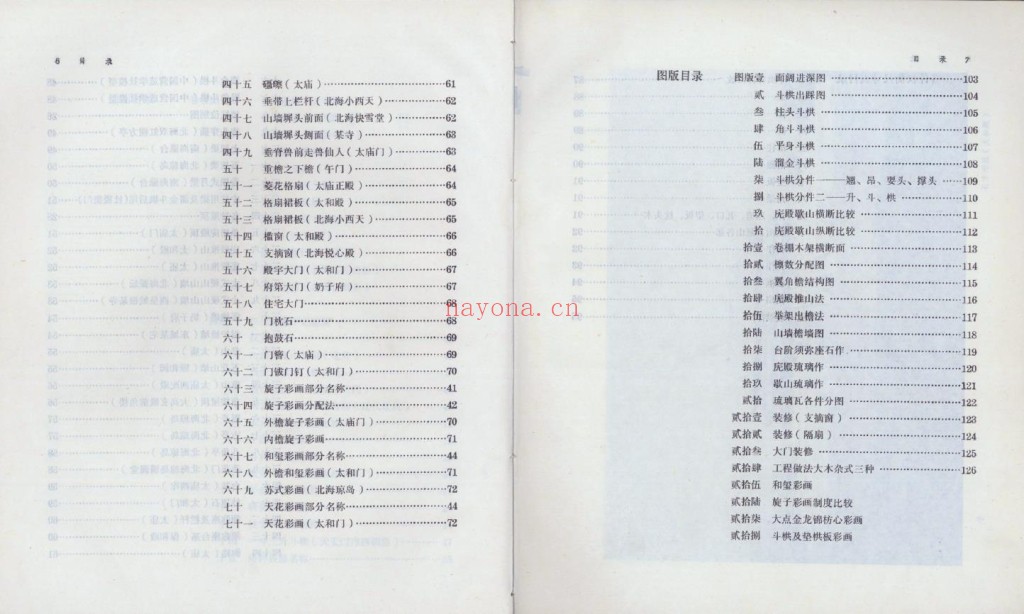 6 目 录
四十五 磉礅(太庙)……61
四十六 垂带上栏杆(北海小西天)……62
四十七 山墙墀头前面(北海快雪堂)……62
四十八 山墙墀头侧面(某寺)……63
四十九 垂脊兽前走兽仙人(太庙门)……63
五十 重檐之下檐(午门)……64
五十一 菱花格扇(太庙正殿)……64
五十二 格扇裙板(太和殿)……65
五十三 格扇裙板(北海小西天)……65
五十四 槛窗(太和殿)……66
五十五 支摘窗(北海悦心殿)……66
五十六 殿宇大门(太和门)……67
五十七 府第大门(奶子府)……67
五十八 住宅大门……68
五十九 门枕石……68
六十 抱鼓石……69
六十一 门簪(太庙)……69
六十二 门钹门钉(太和门)……70
六十三 旋子彩画部分名称……41
六十四 旋子彩画分配法……42
六十五 外檐旋子彩画(太庙门)……70
六十六 内檐旋子彩画……71
六十七 和玺彩画部分名称……44
六十八 外檐和玺彩画(太和门)……71
六十九 苏式彩画(北海琼岛)……72
七十 天花彩画部分名称……44
七十一 天花彩画(太和门)……72
目 录 7
图版目录 图版壹 面阔进深图……103
贰 斗栱出踩图……104
叁 柱头斗栱……105
肆 角斗栱……106
伍 平身斗栱……107
陆 溜金斗栱……108
柒 斗栱分件一——翘、昂、耍头、撑头……109
捌 斗栱分件二——升、斗、栱……110
玖 庑殿歇山横断比较……111
拾 庑殿歇山纵断比较……112
拾壹 卷棚木架横断面……113
拾贰 檩数分配图……114
拾叁 翼角檐结构图……115
拾肆 庑殿推山法……116
拾伍 举架出檐法……117
拾陆 山墙檐墙图……118
拾柒 台阶须弥座石作……119
拾捌 庑殿琉璃作……120
拾玖 歇山琉璃作……121
贰拾 琉璃瓦各件分图……122
贰拾壹 装修(支摘窗)……123
贰拾贰 装修(隔扇)……124
贰拾叁 大门装修……125
贰拾肆 工程做法大木杂式三种……126
贰拾伍 和玺彩画
贰拾陆 旋子彩画制度比较
贰拾柒 大点金龙锦枋心彩画
贰拾捌 斗栱及垫栱板彩画
nayona.cn